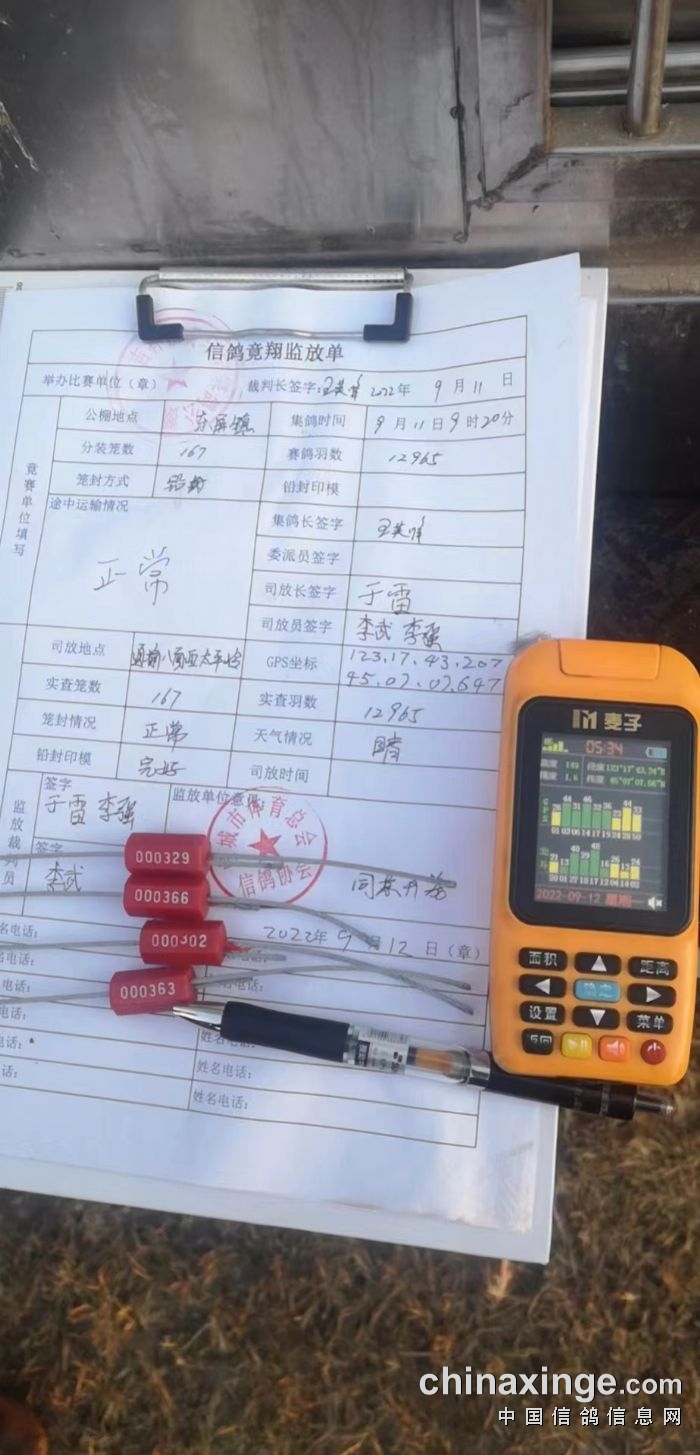 信鸽竞翔监放单
举办比赛单位（章） 裁判长签字: 2022年 9月11日
公棚地点 东屏镇 集鸽时间 9月11日9时20分
竞赛单位填写
分装笼数 167 赛鸽羽数 12965
笼封方式 铅封 铅封印模
途中运输情况 正常
集鸽长签字
委派员签字
司放长签字 于雷
司放员签字 李武 李强
司放地点 GPS坐标 123.17.43.207
45.07.07.647
实查笼数 167 实查羽数 12965
笼封情况 正常 天气情况 晴
铅封印模 完好 司放时间
监放裁判员
签字 于雷 李强 监放单位意见:
签字 李武 同意开笼
城市体育总会
信鸽协会
2022年9月12日（章）
000329
000366
000302
000363
名电话:
名电话:
名电话:
电话:
电话:
话:
姓名电话:
姓名电话:
姓名电话:
麦子
05:34
高度 149 经度
精度 1.6 纬度
GPS
2022-09-12 星期一
面积 ▲ 距离
◀ 确定 ▶
设置 ▼ 菜单
返回
chinaxinge.com
中国信鸽信息网